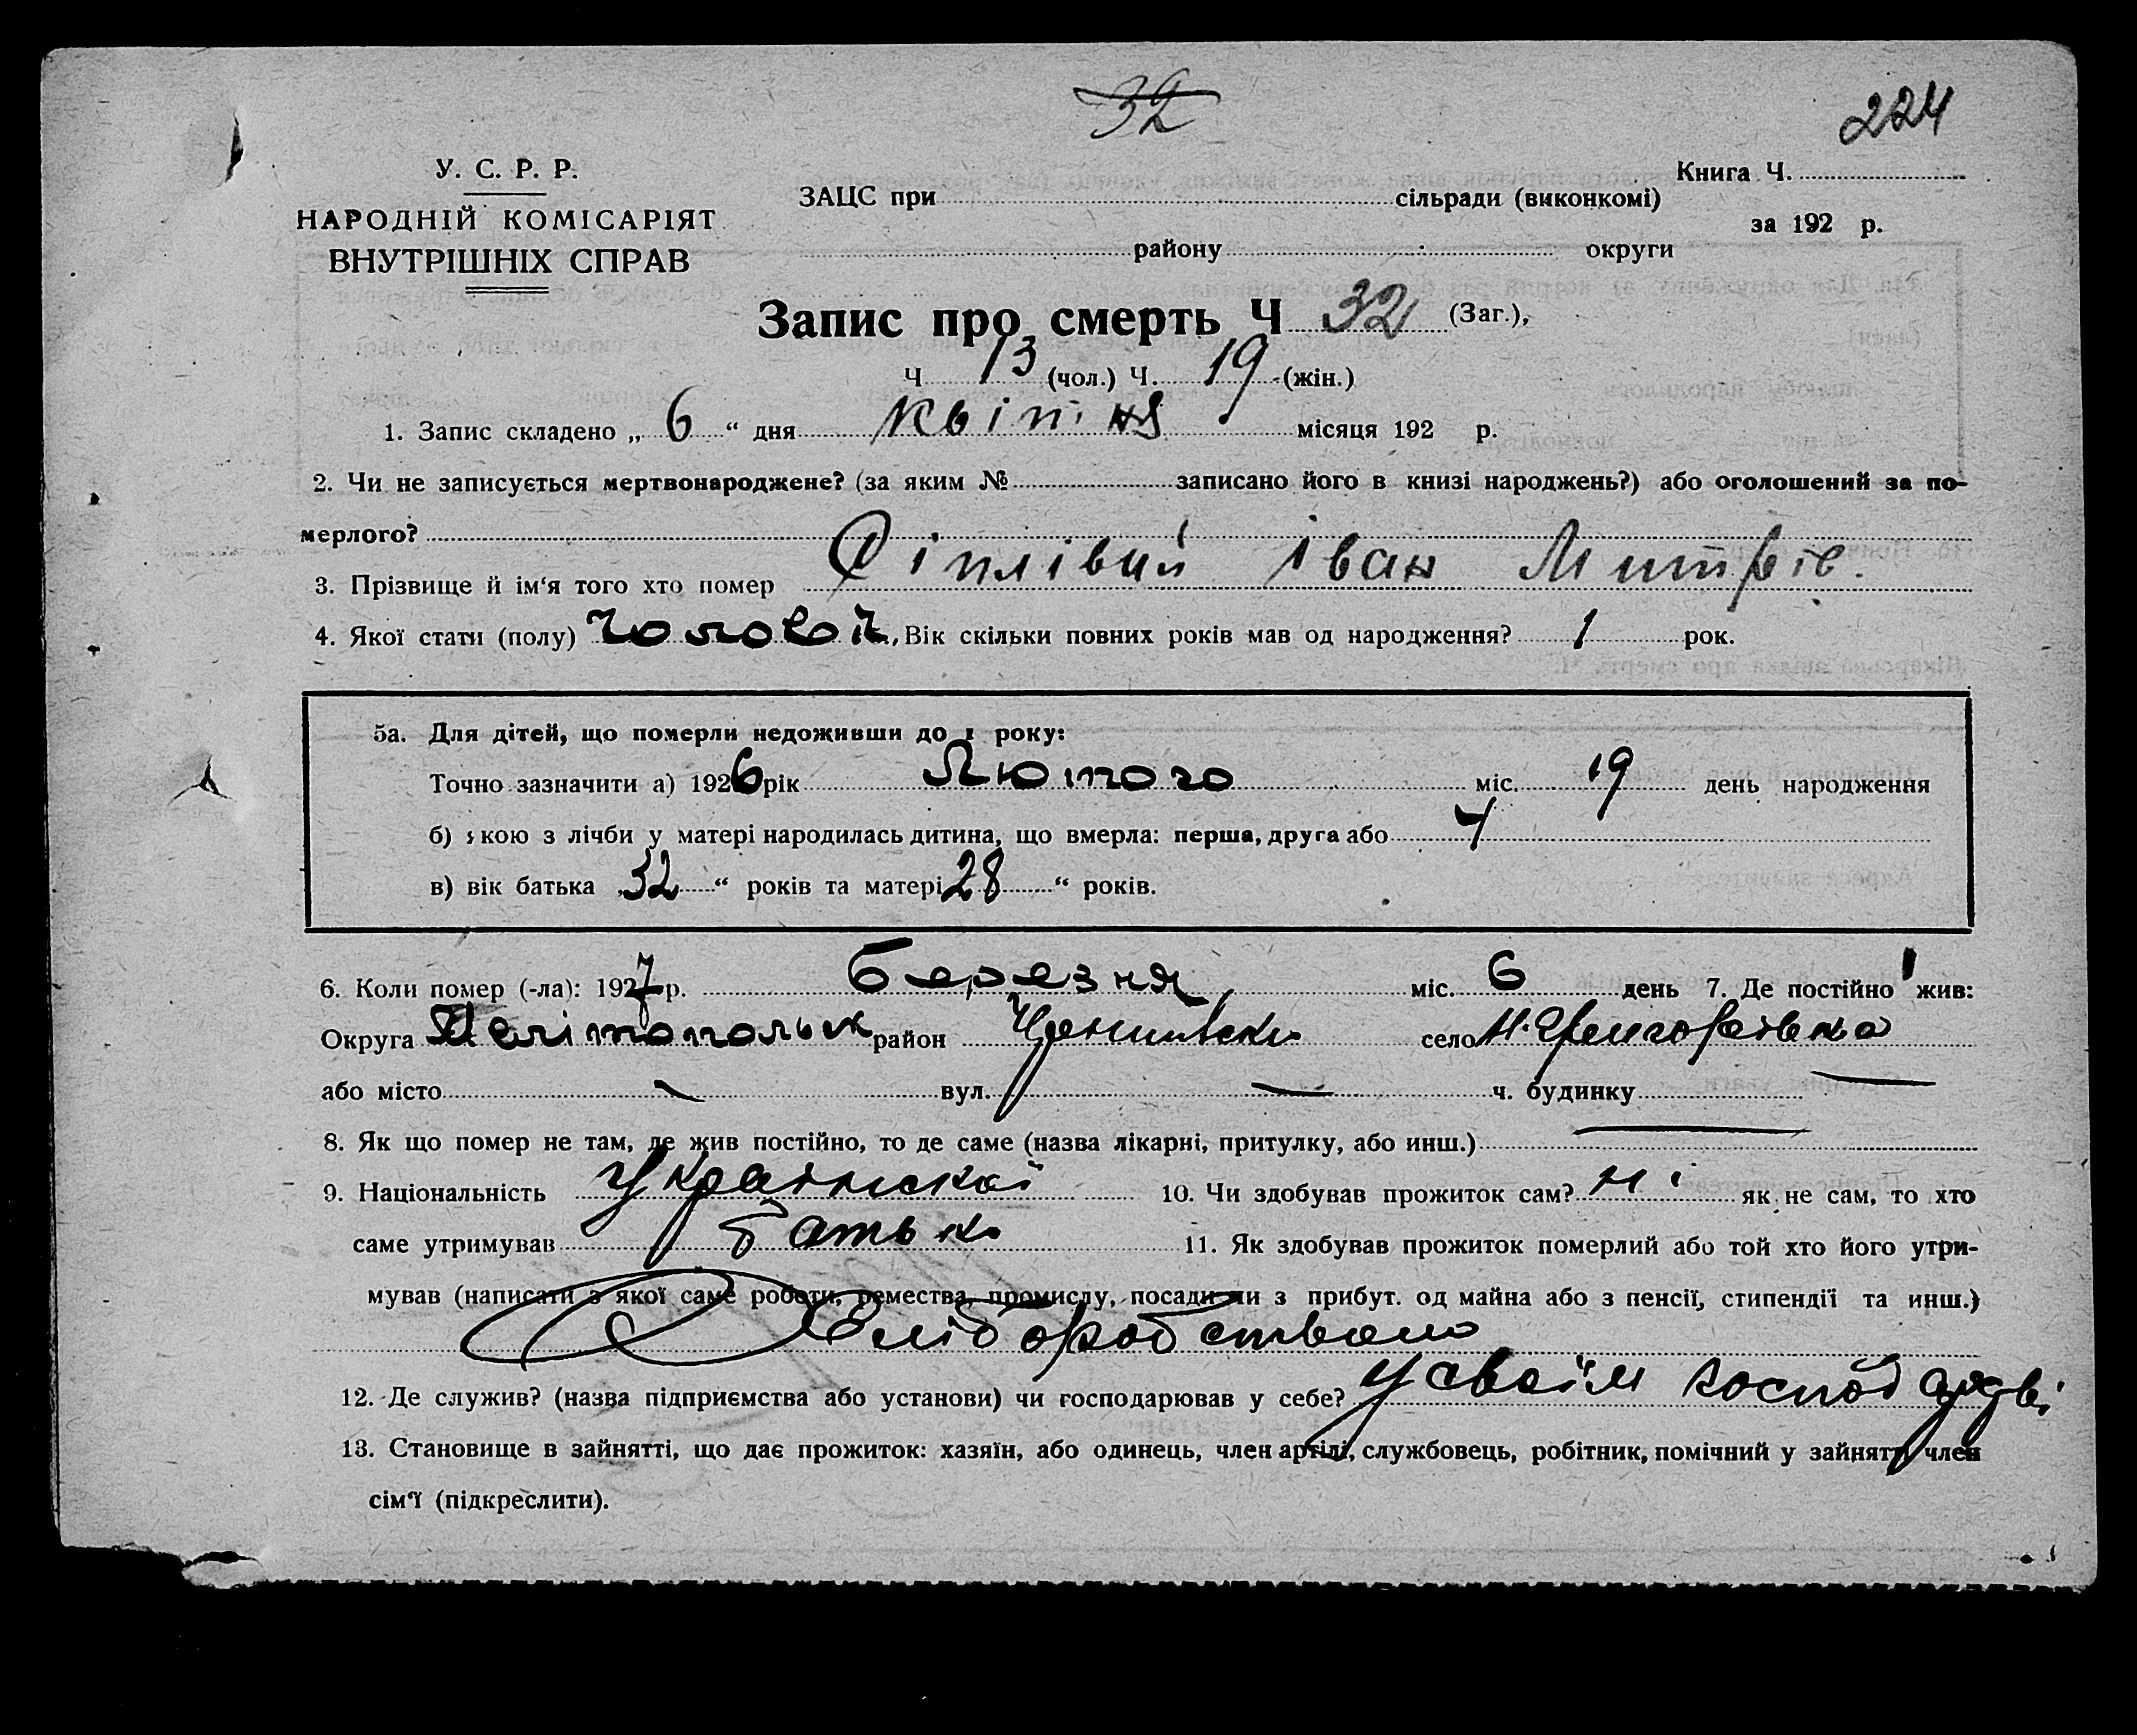 32
224
У. С. Р. Р.
НАРОДНІЙ КОМІСАРІЯТ
ВНУТРІШНІХ СПРАВ
ЗАЦС при сільради (виконкомі)
району округи
Книга Ч.
за 192 р.
Запис про смерть Ч 32 (Заг.),
Ч 13 (чол.) Ч. 19 (жін.)
1. Запис складено „ 6 “ дня квітня місяця 192 р.
2. Чи не записується мертвонароджене? (за яким № записано його в книзі народжень?) або оголошений за по-
мерлого?
3. Прізвище й ім‘я того хто помер Сіплівий Іван Митрів.
4. Якої стати (полу) чоловіч, Вік скільки повних років мав од народження? 1 рок.
5а. Для дітей, що померли недоживши до 1 року:
Точно зазначити а) 1926 рік Лютого міс. 19 день народження
б) якою з лічби у матері народилась дитина, що вмерла: перша, друга або 4
в) вік батька „32“ років та матері 28 “ років.
6. Коли помер (-ла): 1927 р. березня міс. 6 день 7. Де постійно жив:
Округа Мелітопольск район село Н. Григорівка
або місто — вул. — ч. будинку —
8. Як що помер не там, де жив постійно, то де саме (назва лікарні, притулку, або инш.) —
9. Національність 10. Чи здобував прожиток сам? ні як не сам, то хто
саме утримував батько 11. Як здобував прожиток померлий або той хто його утри-
мував (написати з якої саме роботи, ремества, промислу, посади чи з прибут. од майна або з пенсії, стипендії та инш.)
Хліборобством
12. Де служив? (назва підприємства або установи) чи господарював у себе? у своїм господарві
13. Становище в зайнятті, що дає прожиток: хазяїн, або одинець, член артілі, службовець, робітник, помічний у зайнятті член
сім‘ї (підкреслити).